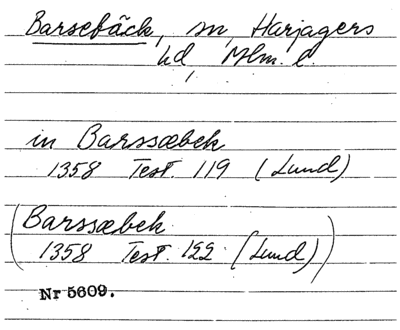 Barsebäck, sn, Harjagers
hd, Mlm. l.
in Barssæbek
1358 Test. 119 (Lund)
(Barssæbek
1358 Test. 122 (Lund))
Nr 5609.